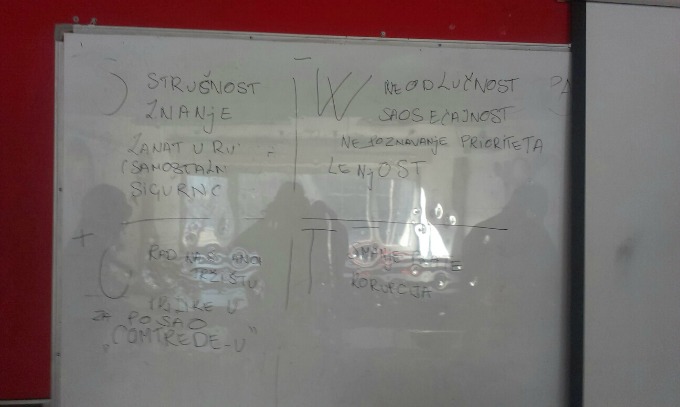 S
STRUŠNOST
ZNANjE
ZANAT U RU
SAMOSTALN
SIGURNC
W
NEODLUČNOST
SAOSEĆAJNOST
NEPOZNAVANjE PRIORITETA
LENjOST
+
O
RAD NA
TRŽIŠTU
ZA POSAO
„COMTREDE-U"
T
KORUPCIJA